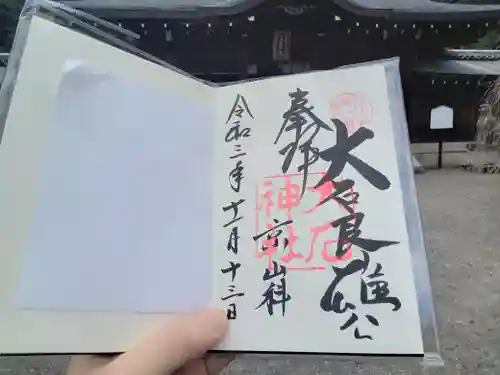 奉拝
大石良雄公
大石
神社
京山科
令和三年十一月十三日